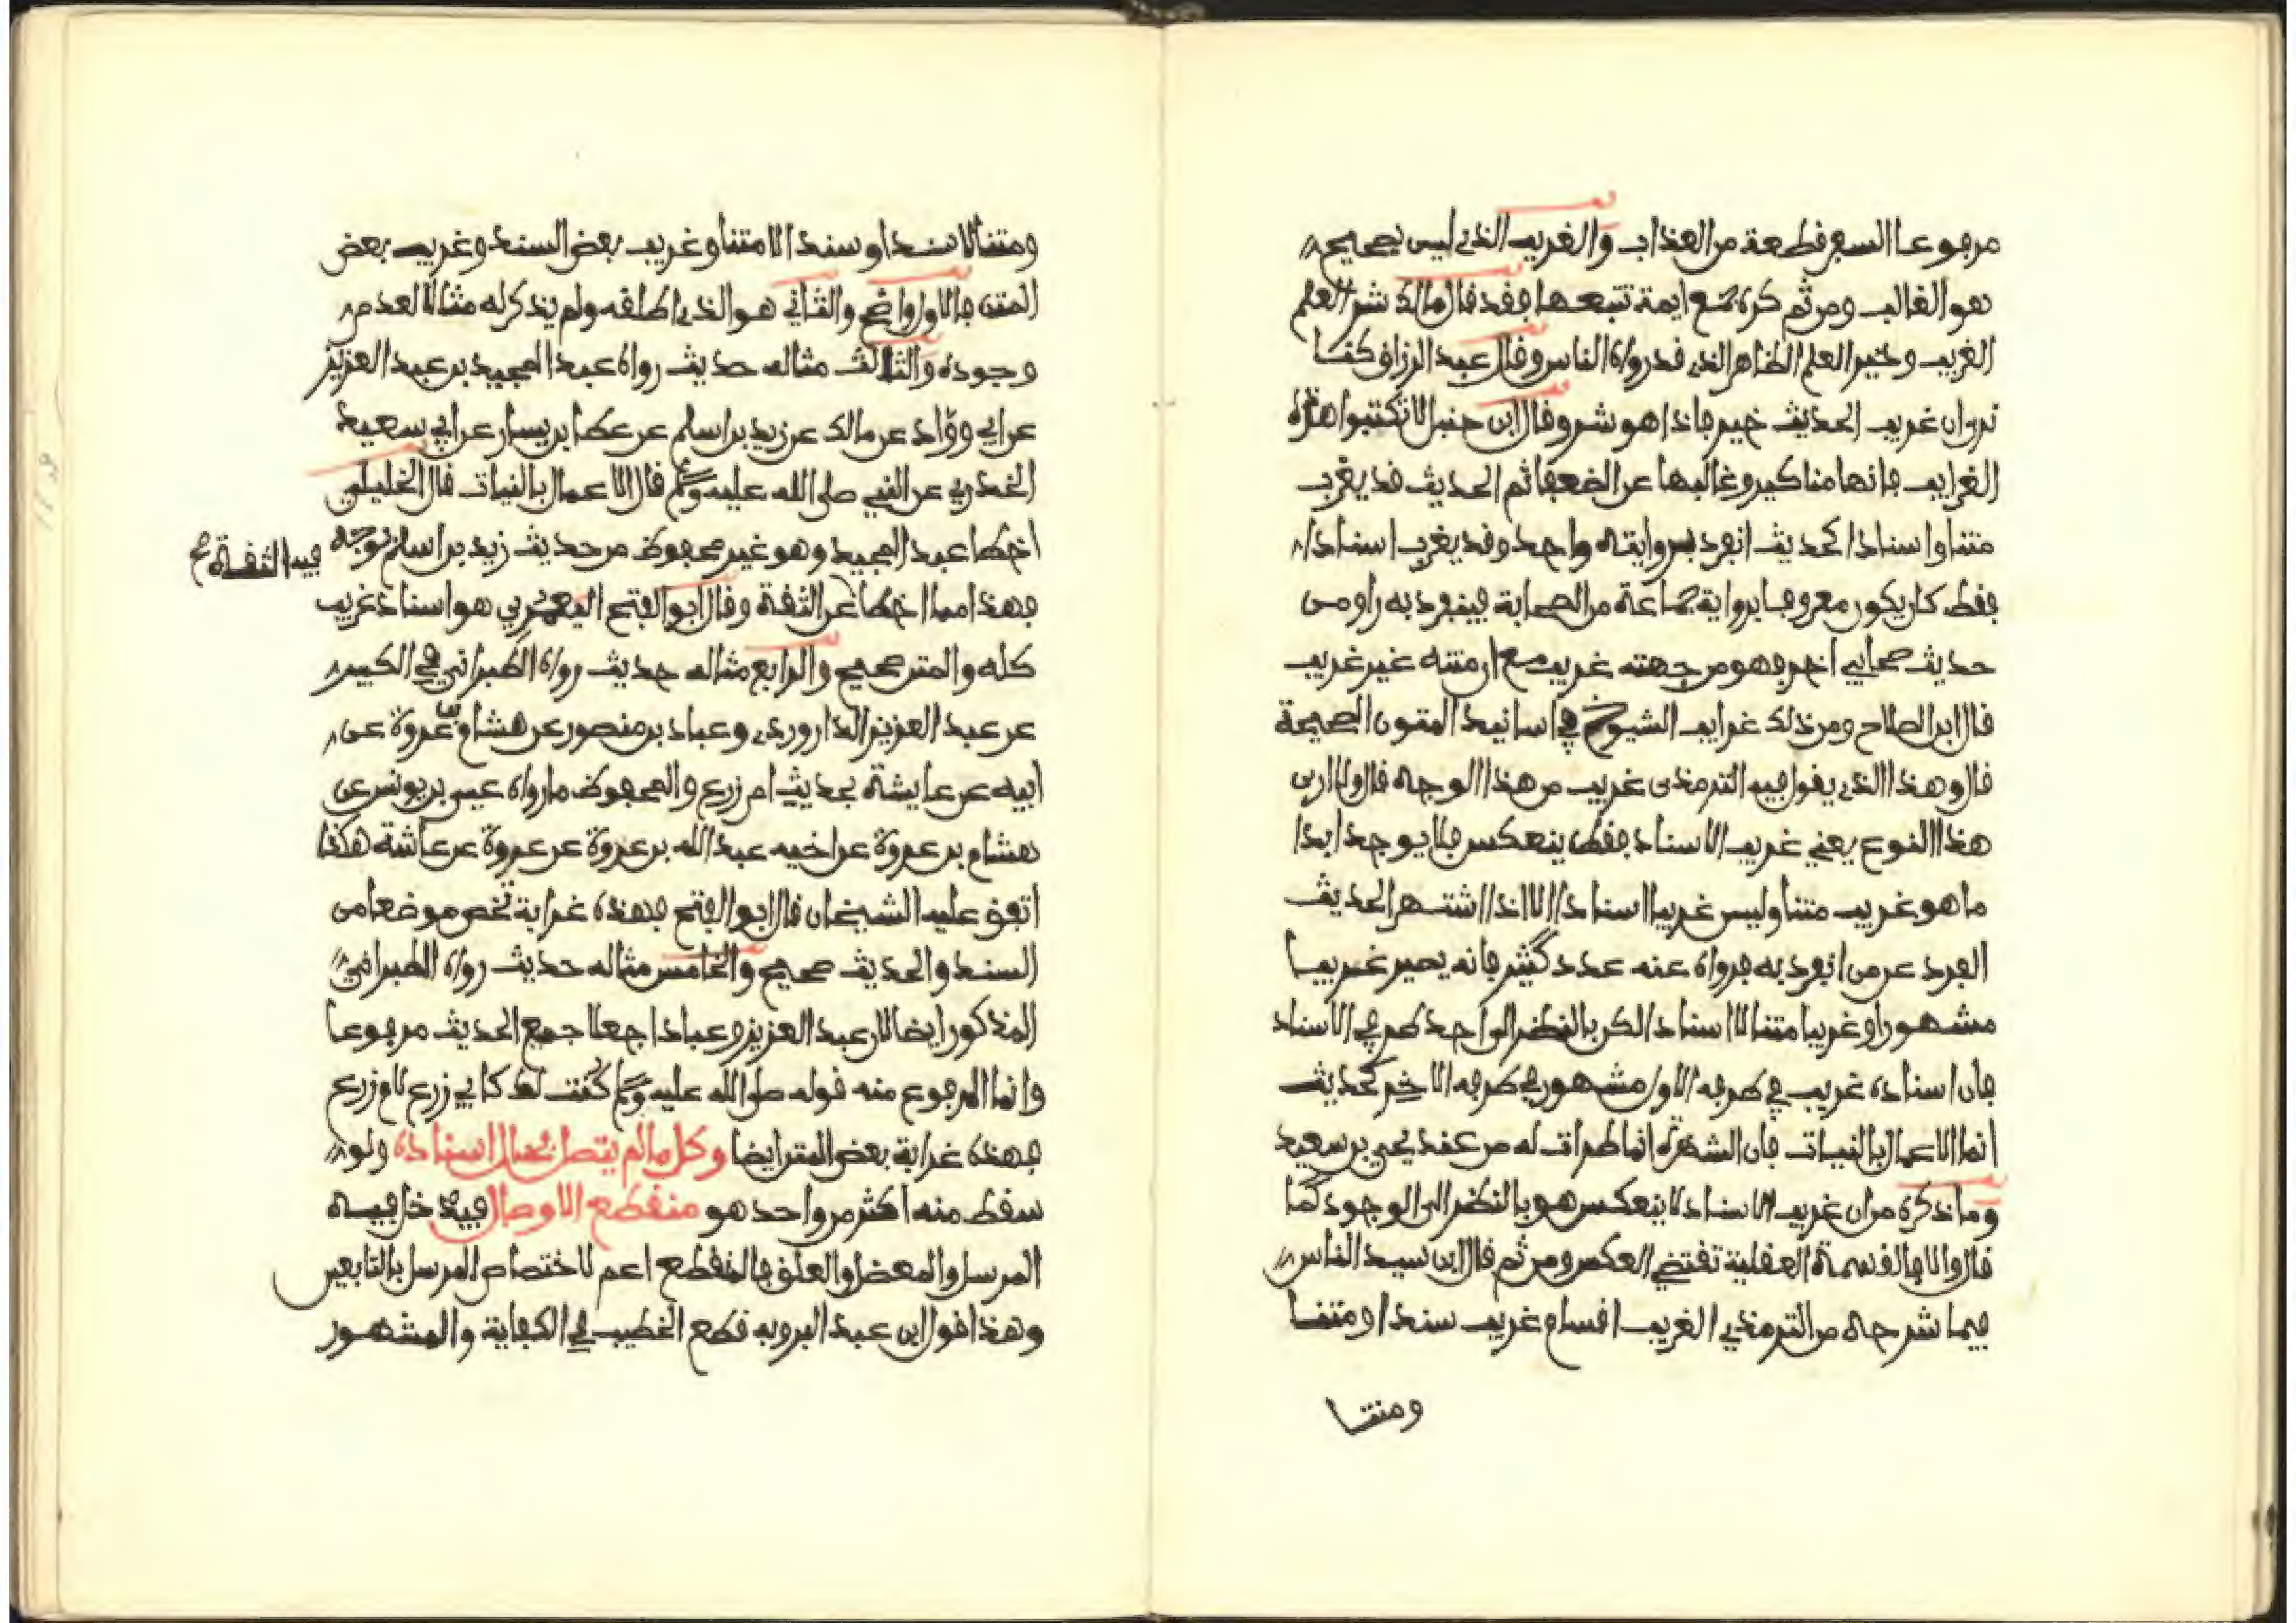 مرفوعا السفر قطعة من العذاب والغريب الذي ليس بصحيح
هو الغالب ومن ثم كره جمع ايمة تتبعها فقد قال مالك شر العلم
الغريب وخير العلم الظاهر الذي قد رواه الناس وقال عبد الرزاق كنا
نرى ان غريب الحديث خير فاذا هو شر وقال ابن حنبل لا تكتبوا هذه
الغرايب فانها مناكير وغالبها عن الضعفا ثم الحديث قد يغرب
متنا واسنادا كحديث انفرد بروايته واحد وقد يغرب اسنادا
فقط كان يكون معروفا برواية جماعة من الصحابة فينفرد به راو من
حديث صحابي اخر فهو من جهته غريب مع ان متنه غير غريب
قال ابن الصلاح ومن ذلك غرايب الشيوخ في اسانيد المتون الصحيحة
قال وهذا الذي يقول فيه الترمذي غريب من هذا الوجه قال ولا ارى
هذا النوع يعني غريب الاسناد فقط ينعكس فلا يوجد ابدا
ما هو غريب متنا وليس غريبا اسنادا الا اذا اشتهر الحديث
الفرد عن من انفرد به فرواه عنه عدد كثير فانه يصير غريبا
مشهورا وغريبا متنا لا اسنادا لكن بالنظر الى احد طرفي الاسناد
فان اسناده غريب في طرفه الاول مشهور في طرفه الاخر كحديث
انما الاعمال بالنيات فان الشهرة انما طرات له من عند يحيى بن سعيد
وما ذكره من ان غريب الاسناد لا ينعكس هو بالنظر الى الوجود كما
قال والا فالقسمة العقلية تقتضي العكس ومن ثم قال ابن سيد الناس
فيما شرحه من الترمذي الغريب اقسام غريب سندا ومتنا
ومتنا
ومتنا لا سندا وسندا لا متنا وغريب بعض السند وغريب بعض
المتن فالاول واضح والثاني هو الذي اطلقه ولم يذكر له مثالا لعدم
وجوده والثالث مثاله حديث رواه عبد المجيد بن عبد العزيز
عن ابي رواد عن مالك عن زيد بن اسلم عن عطا بن يسار عن ابي سعيد
الخدري عن النبي صلى الله عليه وسلم قال الاعمال بالنيات قال الخليلي
اخطا عبد المجيد وهو غير محفوظ من حديث زيد بن اسلم بوجه
فيه الثقة صح
فهذا مما اخطا عن الثقة وقال ابو الفتح اليعمري هو اسناد غريب
كله والمتن صحيح والرابع مثاله حديث رواه الطبراني في الكبير
عن عبد العزيز الداروردي وعباد بن منصور عن هشام عروة عن
ابيه عن عايشة بحديث ام زرع والمحفوظ ما رواه عيسى بن يونس عن
هشام بن عروة عن اخيه عبد الله بن عروة عن عروة عن عائشة هكذا
اتفق عليه الشيخان قال ابو الفتح فهذه غرابة تخص موضعا من
السند والحديث صحيح والخامس مثاله حديث رواه الطبراني
المذكور ايضا لان عبد العزيز وعبادا جعلا جميع الحديث مرفوعا
وانما المرفوع منه قوله صلى الله عليه وسلم كنت لك كابي زرع لام زرع
فهذه غرابة بعض المتن ايضا وكل ما لم يتصل بحال اسناده ولو
سقط منه اكثر من واحد هو منقطع الاوصال فيدخل فيه
المرسل والمعضل والمعلق فالمنقطع اعم لاختصاص المرسل بالتابعين
وهذا قول ابن عبد البر وبه قطع الخطيب في الكفاية والمشهور